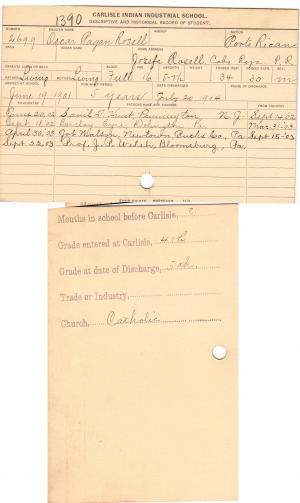 1390
CARLISLE INDIAN INDUSTRIAL SCHOOL.
DESCRIPTIVE AND HISTORICAL RECORD OF STUDENT.
NUMBER ENGLISH NAME AGENCY NATION
4699 Oscar Pagan Rosell Porto Rican
BAND INDIAN NAME HOME ADDRESS
Josefa Rosell, Cabo Rojo, P.R.
PARENTS LIVING OR DEAD BLOOD AGE HEIGHT WEIGHT FORCED INSP. FORCED EXPR. SEX
FATHER Living MOTHER Living Full 16 5-7½ 34 30 m
ARRIVED AT SCHOOL FOR WHAT PERIOD DATE DISCHARGED CAUSE OF DISCHARGE
June 19 1901 5 years July 20, 1904
TO COUNTRY PATRONS NAME AND ADDRESS FROM COUNTRY
June 20, 02 Sam'l L. Pennington N.J. Sept 14-02
Sept 18, 02 Barclay Eyre, Pa. Mar 31-03
April 30, 03 Jos. Watson, Newtown, Bucks Co., Pa Sept 15-03
Sept 22 03 Prof. J. P. Welsh, Bloomsburg, Pa.
Months in school before Carlisle, ?
Grade entered at Carlisle, 4th
Grade at date of Discharge, 5th
Trade or Industry,
Church, Catholic